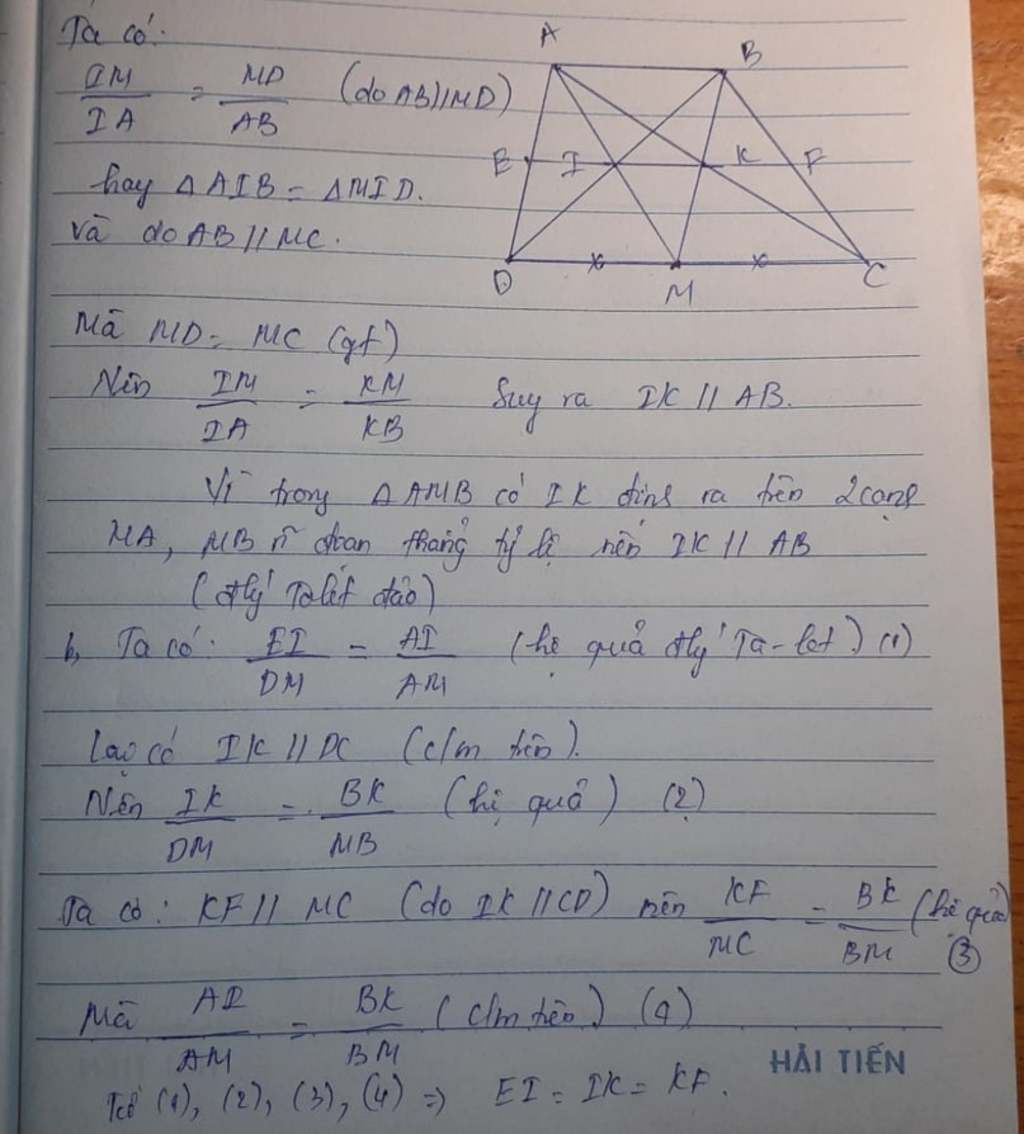 Ta có:
IM/IA = MD/AB (do AB//MD)
hay Δ AIB = Δ MID.
và do AB // MC.
A
B
E
I
K
F
D
M
C
Mà MD = MC (gt)
Nên IM/IA = KM/KB Suy ra IK // AB.
Vì trong Δ AMB có IK định ra trên 2 cạnh
MA, MB n~ đoạn thẳng tỷ lệ nên IK // AB
(đlý Talét đảo)
b, Ta có: EI/DM = AI/AM (hệ quả đlý Ta-let) (1)
Lại có IK // DC (c/m trên).
Nên IK/DM = BK/MB (hệ quả) (2)
Ta có: KF // MC (do IK // CD) nên KF/MC = BK/BM (hệ quả) (3)
Mà AI/AM = BK/BM (c/m trên) (4)
Từ (1), (2), (3), (4) => EI = IK = KF.
HẢI TIẾN